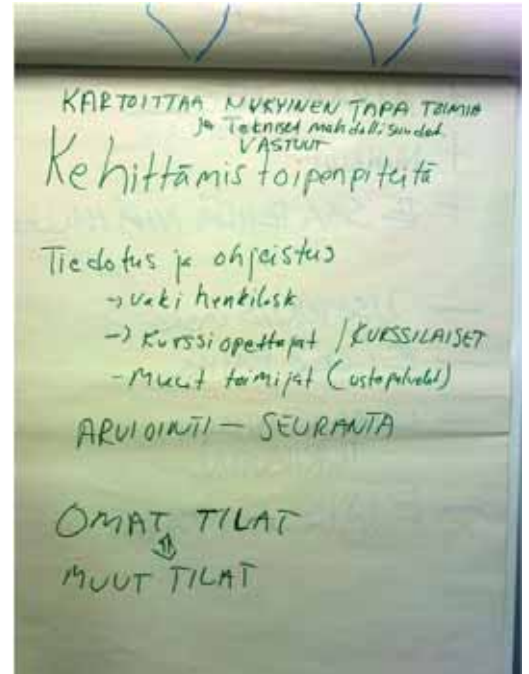 KARTOITTAA NYKYINEN TAPA TOIMIA
ja Tekniset mahdollisuudet
VASTUUT
Kehittämis toipenpiteitä
Tiedotus ja ohjeistus
→ Vaki henkilösk
→ Kurssiopettajat / KURSSILAISET
- Muut toimijat (ostopalvelut)
ARVIOINTI — SEURANTA
OMAT TILAT
MUUT TILAT